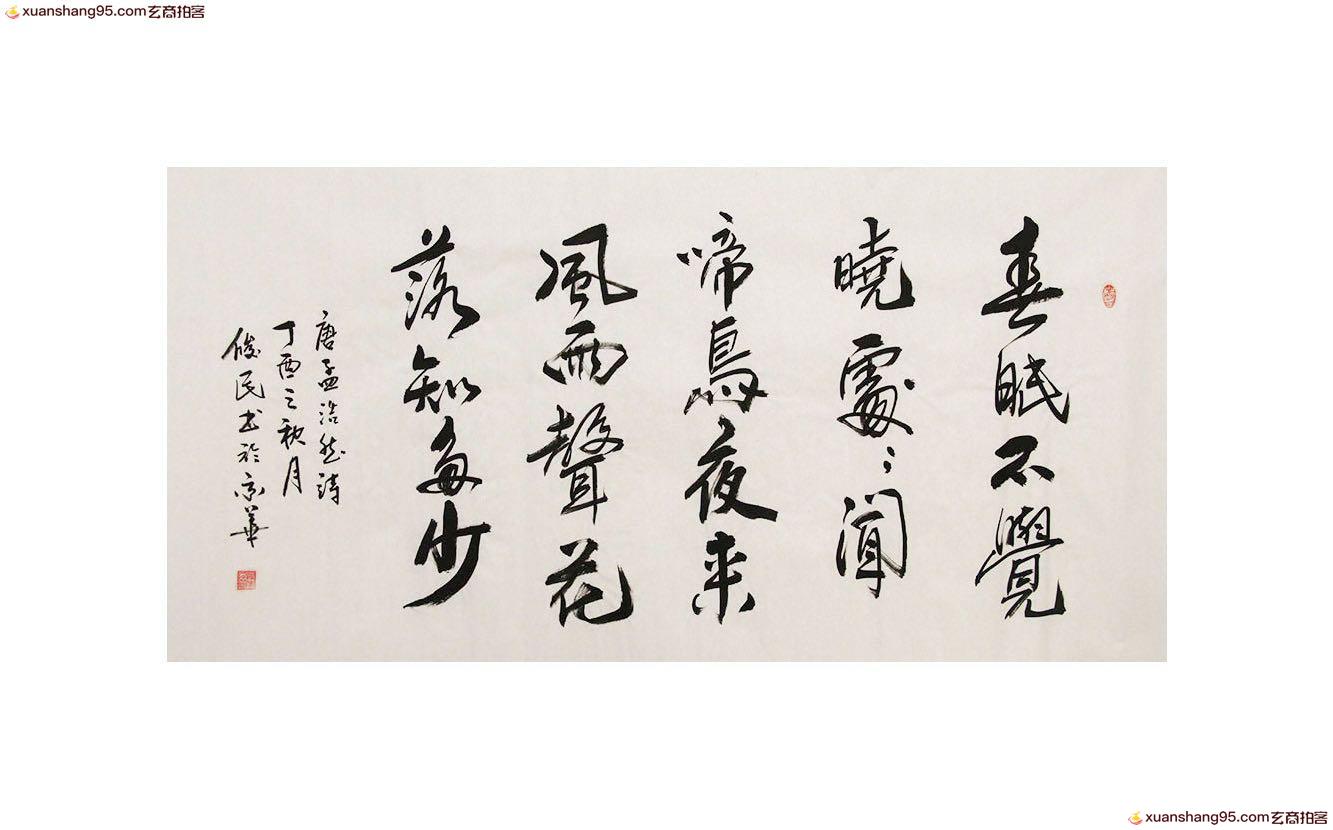 xuanshang95.com玄商拍客
春眠不覺
曉處〻聞
啼鳥夜来
風雨聲花
落知多少
唐孟浩然詩
丁酉之秋月
俊民书於京華
xuanshang95.com玄商拍客